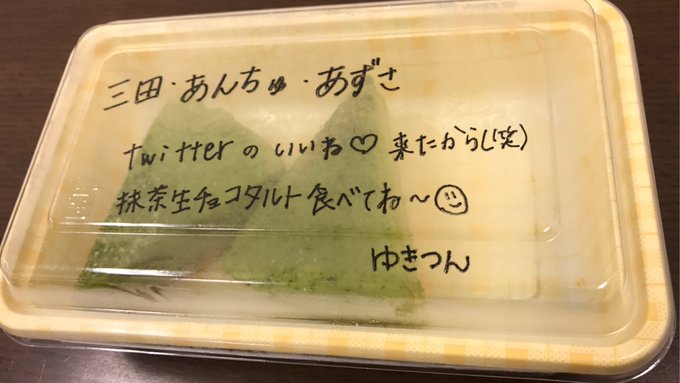 三田・あんちゅ・あずさ
twitterのいいね♡来たから(笑)
抹茶生チョコタルト食べてね〜☺
ゆきつん